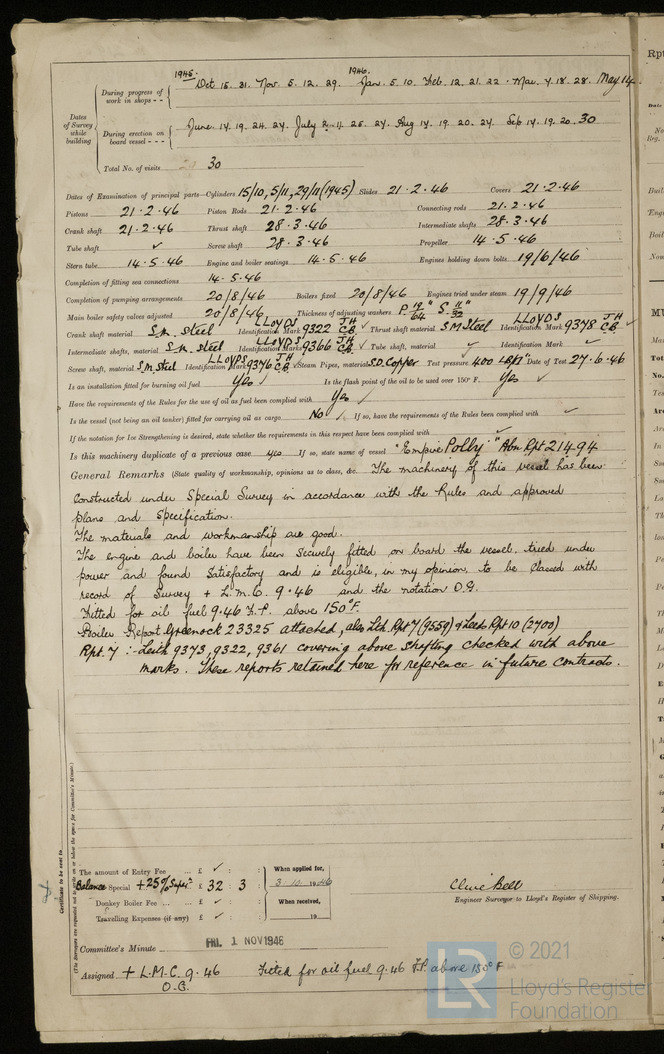 1945. 1946.
During progress of work in shops - - Oct 15. 31. Nov. 5. 12. 29. Jan. 5. 10 Feb. 12. 21. 22. Mar. 7. 18. 28. May 14.
Dates of Survey while building
During erection on board vessel - - - June. 14. 19. 24. 27. July 2. 11. 25. 27. Aug 14. 19. 20. 27. Sep 14. 19. 20. 30
Total No. of visits 30
Dates of Examination of principal parts—Cylinders 15/10, 5/11, 29/11 (1945) Slides 21·2·46 Covers 21·2·46
Pistons 21·2·46 Piston Rods 21·2·46 Connecting rods 21·2·46
Crank shaft 21·2·46 Thrust shaft 28·3·46 Intermediate shafts 28·3·46
Tube shaft ✓ Screw shaft 28·3·46 Propeller 14·5·46
Stern tube 14·5·46 Engine and boiler seatings 14·5·46 Engines holding down bolts 19/6/46
Completion of fitting sea connections 14·5·46
Completion of pumping arrangements 20/8/46 Boilers fixed 20/8/46 Engines tried under steam 19/9/46
Main boiler safety valves adjusted 20/8/46 Thickness of adjusting washers P 19/64" S 11/32"
Crank shaft material S.M. Steel Identification Mark LLOYDS 9322 JH CB ✓ Thrust shaft material S M Steel Identification Mark LLOYDS 9378 JH CB ✓
Intermediate shafts, material S.M. Steel Identification Marks LLOYDS 9366 JH CB ✓ Tube shaft, material ✓ Identification Mark ✓
Screw shaft, material S.M Steel Identification Mark LLOYDS 9376 JH CB ✓ Steam Pipes, material S.D. Copper Test pressure 400 LBS/□" Date of Test 27·6·46
Is an installation fitted for burning oil fuel Yes ✓ Is the flash point of the oil to be used over 150° F. Yes ✓
Have the requirements of the Rules for the use of oil as fuel been complied with Yes ✓
Is the vessel (not being an oil tanker) fitted for carrying oil as cargo No ✓ If so, have the requirements of the Rules been complied with ✓
If the notation for Ice Strengthening is desired, state whether the requirements in this respect have been complied with ✓
Is this machinery duplicate of a previous case yes If so, state name of vessel "Empire Polly" Abn Rpt 21494
General Remarks (State quality of workmanship, opinions as to class, &c. The machinery of this vessel has been
constructed under Special Survey in accordance with the Rules and approved
plans and Specification.
The materials and workmanship are good.
The engine and boiler have been securely fitted on board the vessel, tried under
power and found satisfactory and is eligible, in my opinion, to be Classed with
record of Survey + L.M.C. 9·46 and the notation O.G.
Fitted for oil fuel 9·46 F.P. above 150°F.
Boiler Report Greenock 23325 attached, also Lth. Rpt 7 (9559) & Leeds Rpt 10 (2700)
Rpt. 7 :- Leith 9373, 9322, 9361 covering above shafting checked with above
marks. These reports retained here for reference in future contracts.
The amount of Entry Fee ... £ ✓ : When applied for,
Balance Special +25% Super £ 32 : 3 : 3.10.1946
Donkey Boiler Fee ... £ ✓ : When received,
Travelling Expenses (if any) £ ✓ : 19
Clive Bell
Engineer Surveyor to Lloyd's Register of Shipping.
Committee's Minute FRI. 1 NOV 1946
Assigned + L.M.C. 9. 46 Fitted for oil fuel 9.46 F.P. above 150°F
O.G.
Certificate to be sent to
(The Surveyors are requested not to write on or below the space for Committee's Minute.)
LR © 2021
Lloyd's Register
Foundation